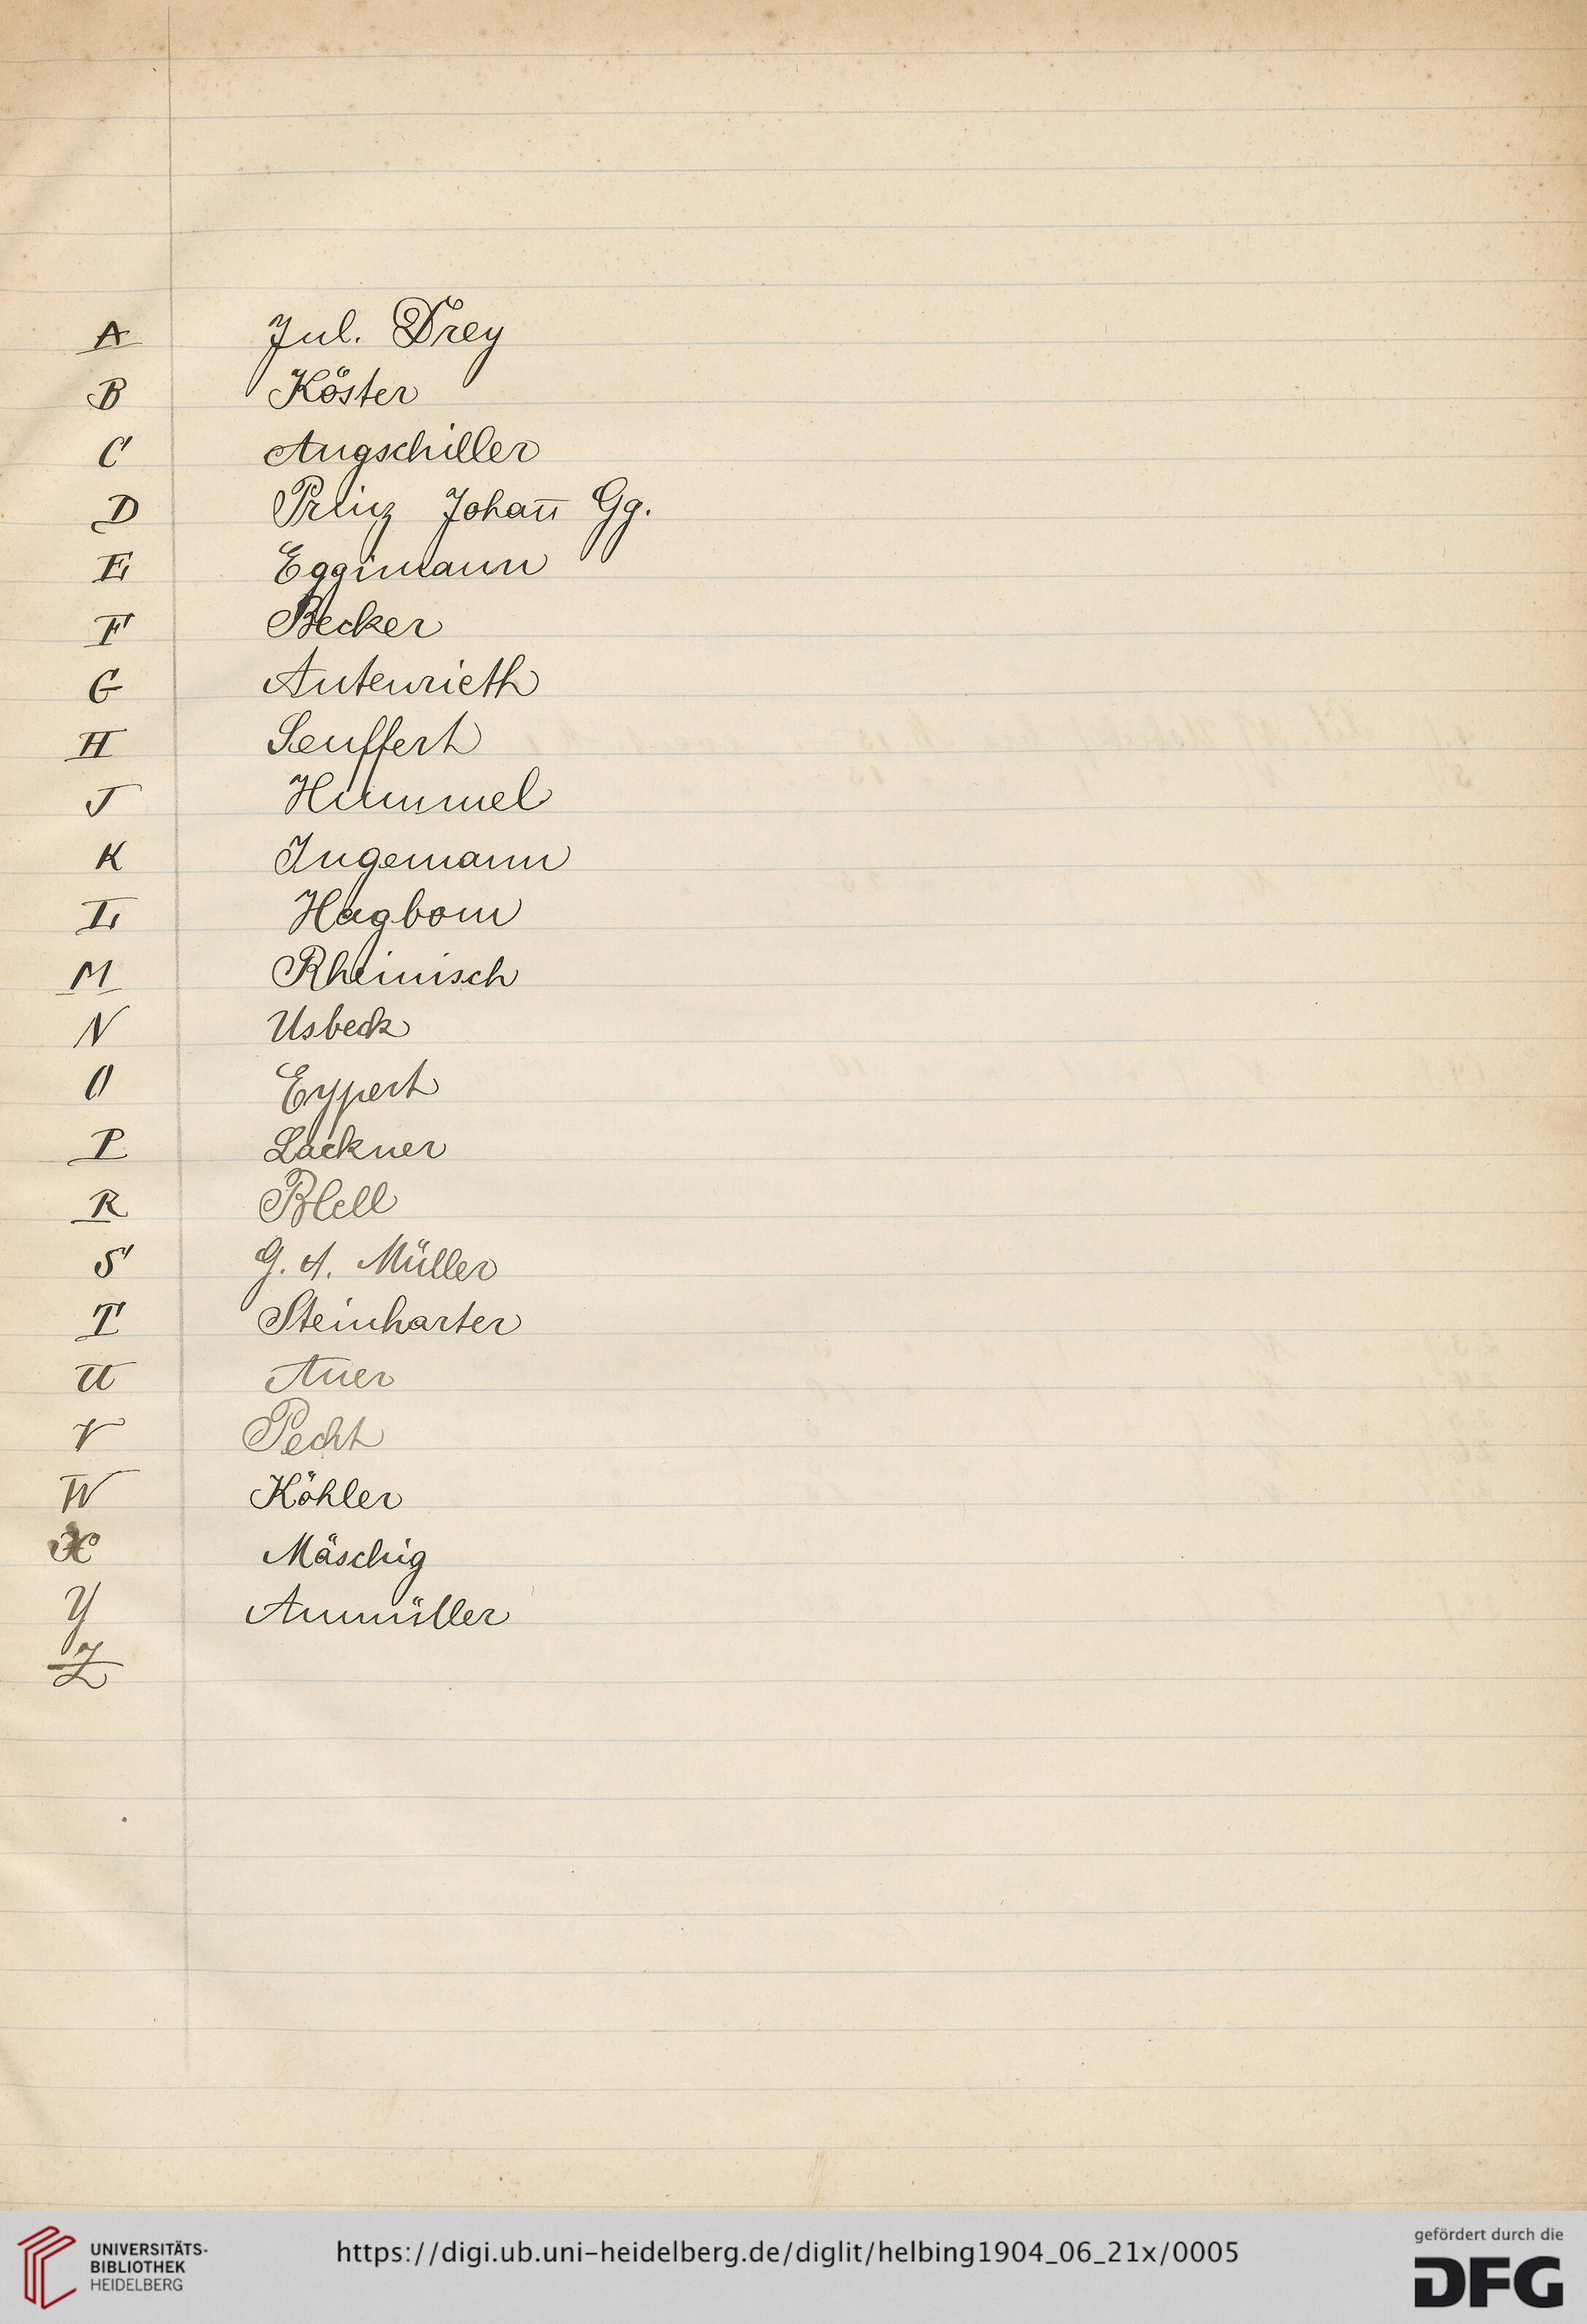 A Jul. Drey
B Köster
C Augschiller
D Prinz Johañ Gg.
E Eggimann
F Becker
G Autenrieth
H Seuffert
J Hummel
K Ingemann
L Hagbom
M Rheinisch
N Usbeck
O Erppert
P Lackner
R Blell
S G. A. Müller
T Steinharter
U Auer
V Pecht
W Köhler
X Mäschig
Y Aumüller
Z
UNIVERSITÄTS-
BIBLIOTHEK
HEIDELBERG
https://digi.ub.uni-heidelberg.de/diglit/helbing1904_06_21x/0005
gefördert durch die
DFG